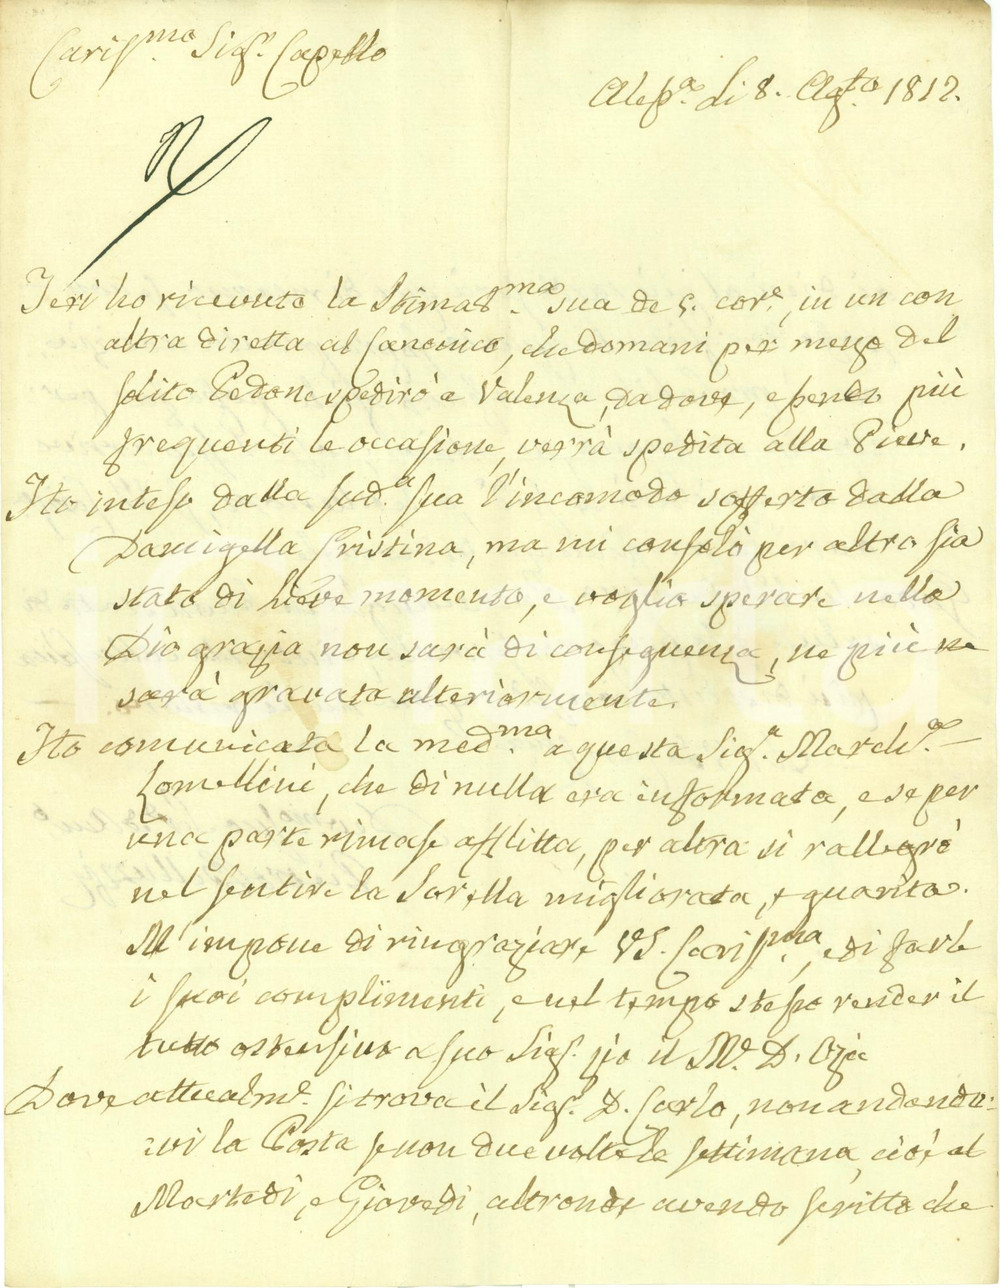 Cariss.mo Sig.r Capello
Aless.a li 8. Ag.to 1812.
Jeri ho ricevuto la Stimat.ma sua de 5. cor.e, in un con
altra diretta al Canonico, che domani per mezzo del
solito Pedone spedirò a Valenza, da dove, essendo più
frequenti le occasione, verrà spedita alla Pieve.
Ho inteso dalla sud.a sua l'incomodo sofferto dalla
Damigella Cristina, ma mi consolò per altro sia
stato di lieve momento, e voglio sperare nella
Dio grazia non sarà di conseguenza, ne più ne
sarà gravata ulteriormente.
Ho comunicata la med.ma a questa Sig.a March.a
Lomellini, che di nulla era informata, e se per
una parte rimase afflitta, per altra si rallegrò
nel sentire la Sorella migliorata, e guarita.
M'impone di ringraziare VS. Cariss.ma, e di farle
i suoi complimenti, e nel tempo stesso render il
tutto ostensivo a suo Sig.r zio il M.e D.
Dove attualm.e si trova il Sig.r D. Carlo, non andando-
vi la Posta se non due volte la settimana, cioè al
Martedì, e Giovedì, altronde avendo scritto che